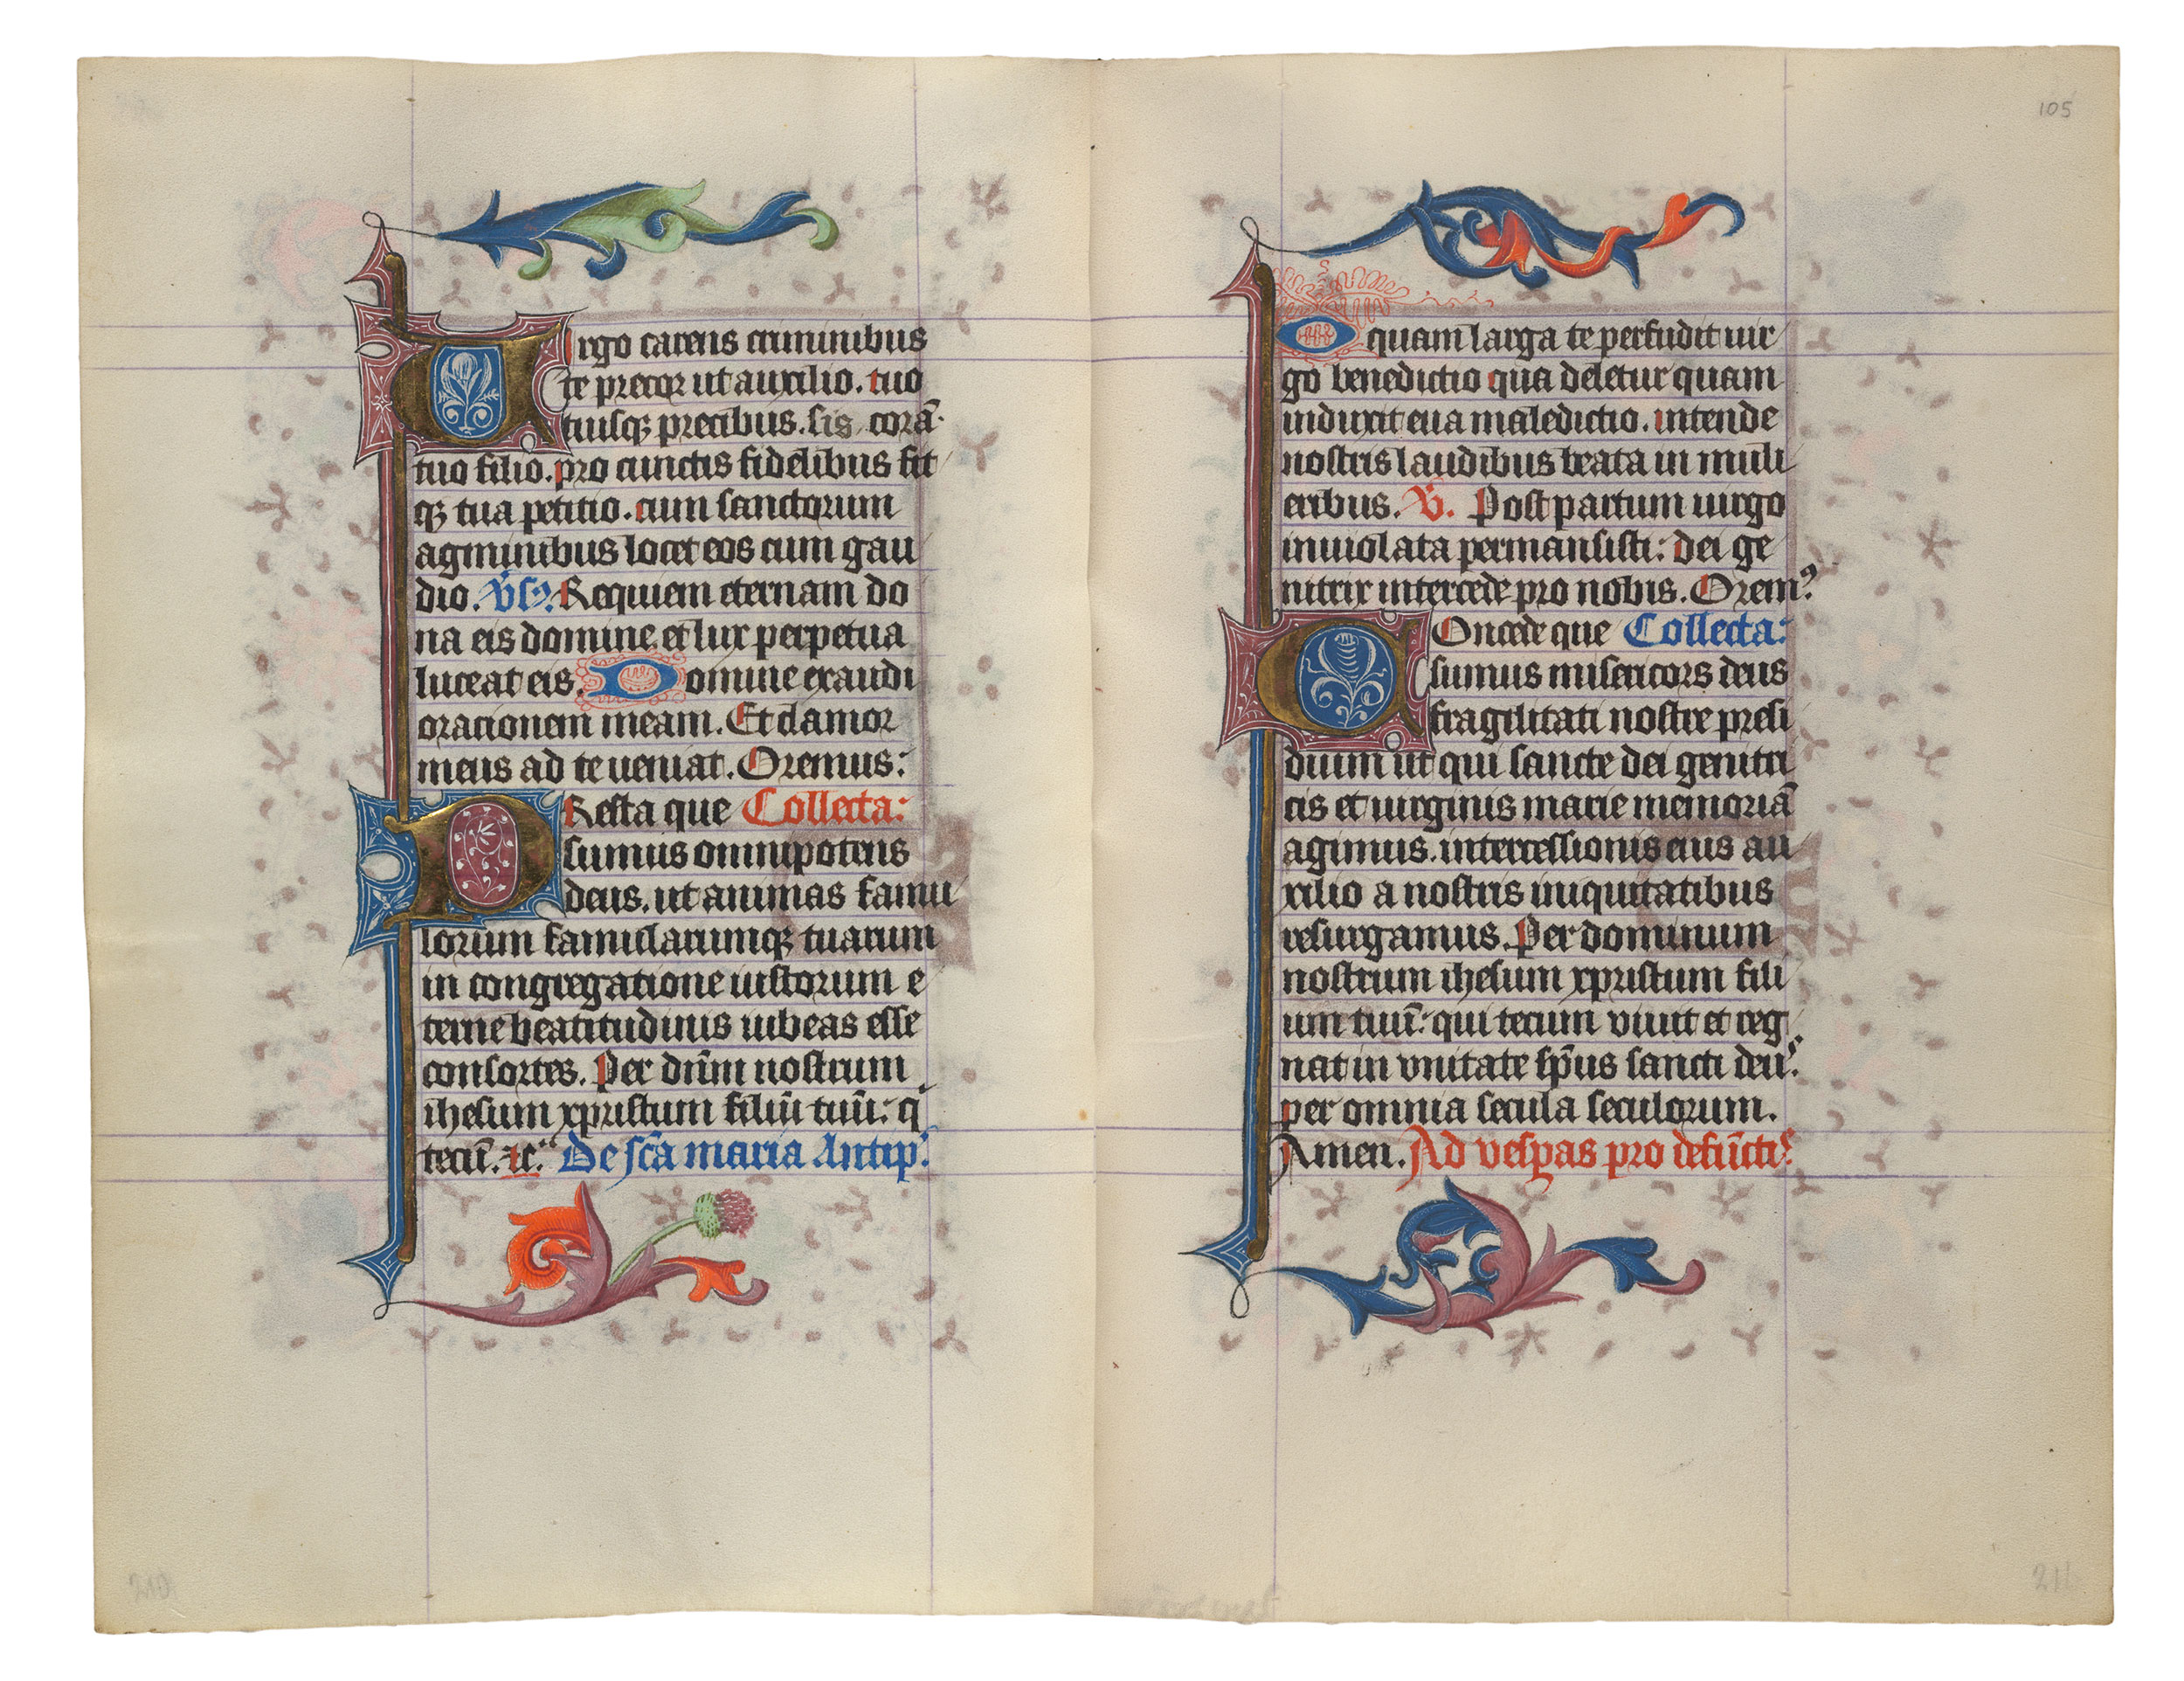 Virgo carens criminibus
te precor ut auxilio. tuo
tuisqꝫ precibus. sis corā
tuo filio. pro cunctis fidelibus fit
qꝫ tua petitio. cum sanctorum
agminibus locet eos cum gau
dio. Vs. Requiem eternam do
na eis domine et lux perpetua
luceat eis. Domine exaudi
orationem meam. Et clamor
meus ad te ueniat. Oremus:
PResta que Collecta:
sumus omnipotens
deus. ut animas famu
lorum famularumqꝫ tuarum
in congregatione iustorum e
terne beatitudinis iubeas esse
consortes. Per dn̄m nostrum
ihesum xpristum filiū tuū: q
tecū. ⁊c. De sc̄a maria Antip.
105
O quam larga te perfudit uir
go benedictio qua deletur quam
induxit eua maledictio. intende
nostris laudibus beata in muli
eribus. V. Post partum uirgo
inuiolata permansisti: dei ge
nitrix intercede pro nobis. Oremꝰ
COncede que Collecta:
sumus misericors deus
fragilitati nostre presi
dium ut qui sancte dei genitri
cis et uirginis marie memoriā
agimus. intercessionis eius au
xilio a nostris iniquitatibus
resurgamus. Per dominum
nostrum ihesum xpristum fili
um tuū: qui tecum viuit et reg
nat in vnitate sp̄us sancti deus
per omnia secula seculorum.
Amen. Ad vesp̲as pro defūctis
210
211